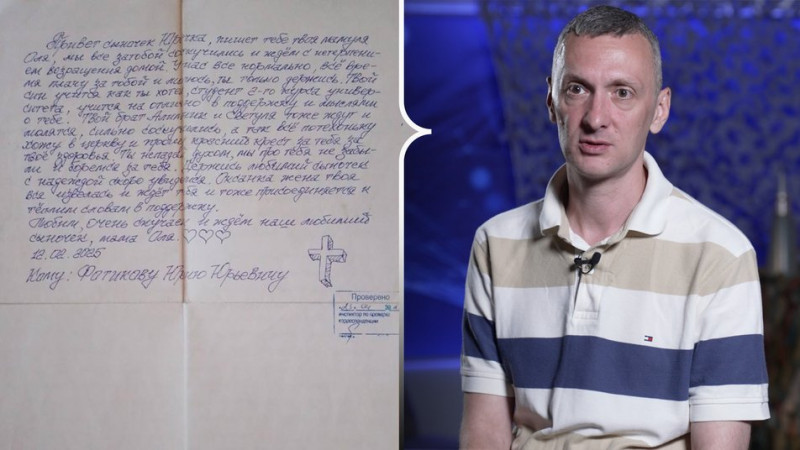 Привет сыночек Юрочка, пишет тебе твоя мамуля
Оля, мы все затобой соскучились и ждём с нетерпени-
ем возращения домой. У нас все нормально, всё вре-
мя плачу за тобой и молюсь, ты только держись. Твой
син учится как ты хотел, студент 2-го курса универ-
ситета, учится на отлично в поддержку и мыслями
о тебе. Твой брат и Светуля тоже ждут и
молятся, сильно соскучились, а так всё потихоньку
хожу в церкву и прошу крест за тебя за
твоё здоровья. Ты не падай духом, мы про тебя не забы-
ли и боремся за тебя. Держись любимый сыночек
с надеждой скоро увидемся. Оксанка жена твоя
вся извелась и ждёт тебя и тоже присоединяется к
тёплим словам в поддержку.
Любим, очень скучаем и ждём наш любимый
сыночек, мама Оля.
12.02.2025
Кому: Фатикову Юрию Юрьевичу
Проверено
инспектор по проверке
корреспонденции